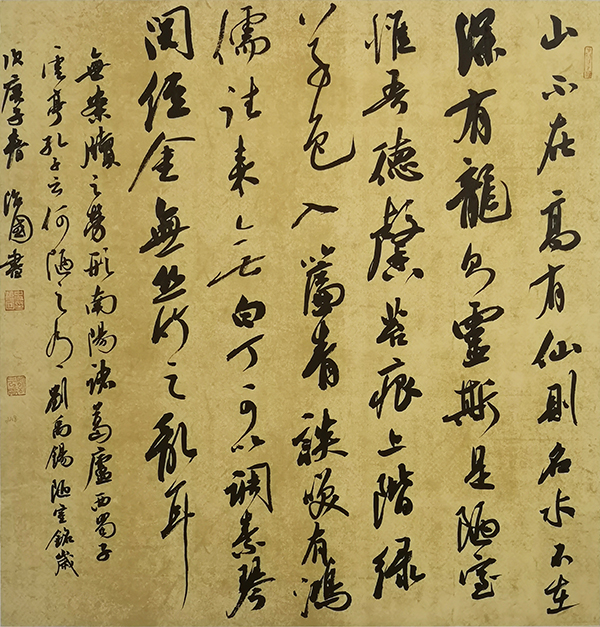 山不在高有仙則名水不在
深有龍則靈斯是陋室
惟吾德馨苔痕上階緑
草色入簾青談笑有鴻
儒往来无白丁可以調素琴
閲經金無丝竹之亂耳
無案牘之勞形南陽諸葛廬西蜀子
雲亭孔子云何陋之有劉禹錫陋室銘歲
次庚子春國書